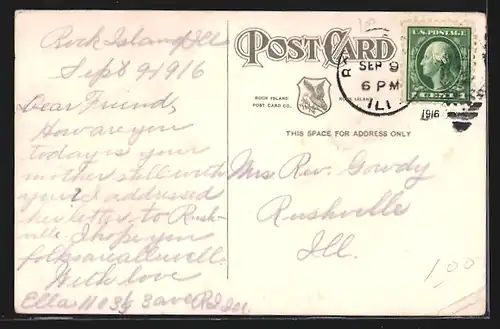 Rock Island Ill
Sept 9 1916
Dear Friend,
How are you
today is your
mother still with
you? I addressed
her letter to Rush-
ville. I hope you
folks are all well.
With love
Ella 1103½ 3 ave R.I. Ill.
POST CARD
ROCK ISLAND
POST CARD CO.
ROCK ISLAND
THIS SPACE FOR ADDRESS ONLY
SEP 9
6 PM
ILL
1916
U.S. POSTAGE
1 CENT 1
Mrs Rev. Gowdy
Rushville
Ill.
100
1,00